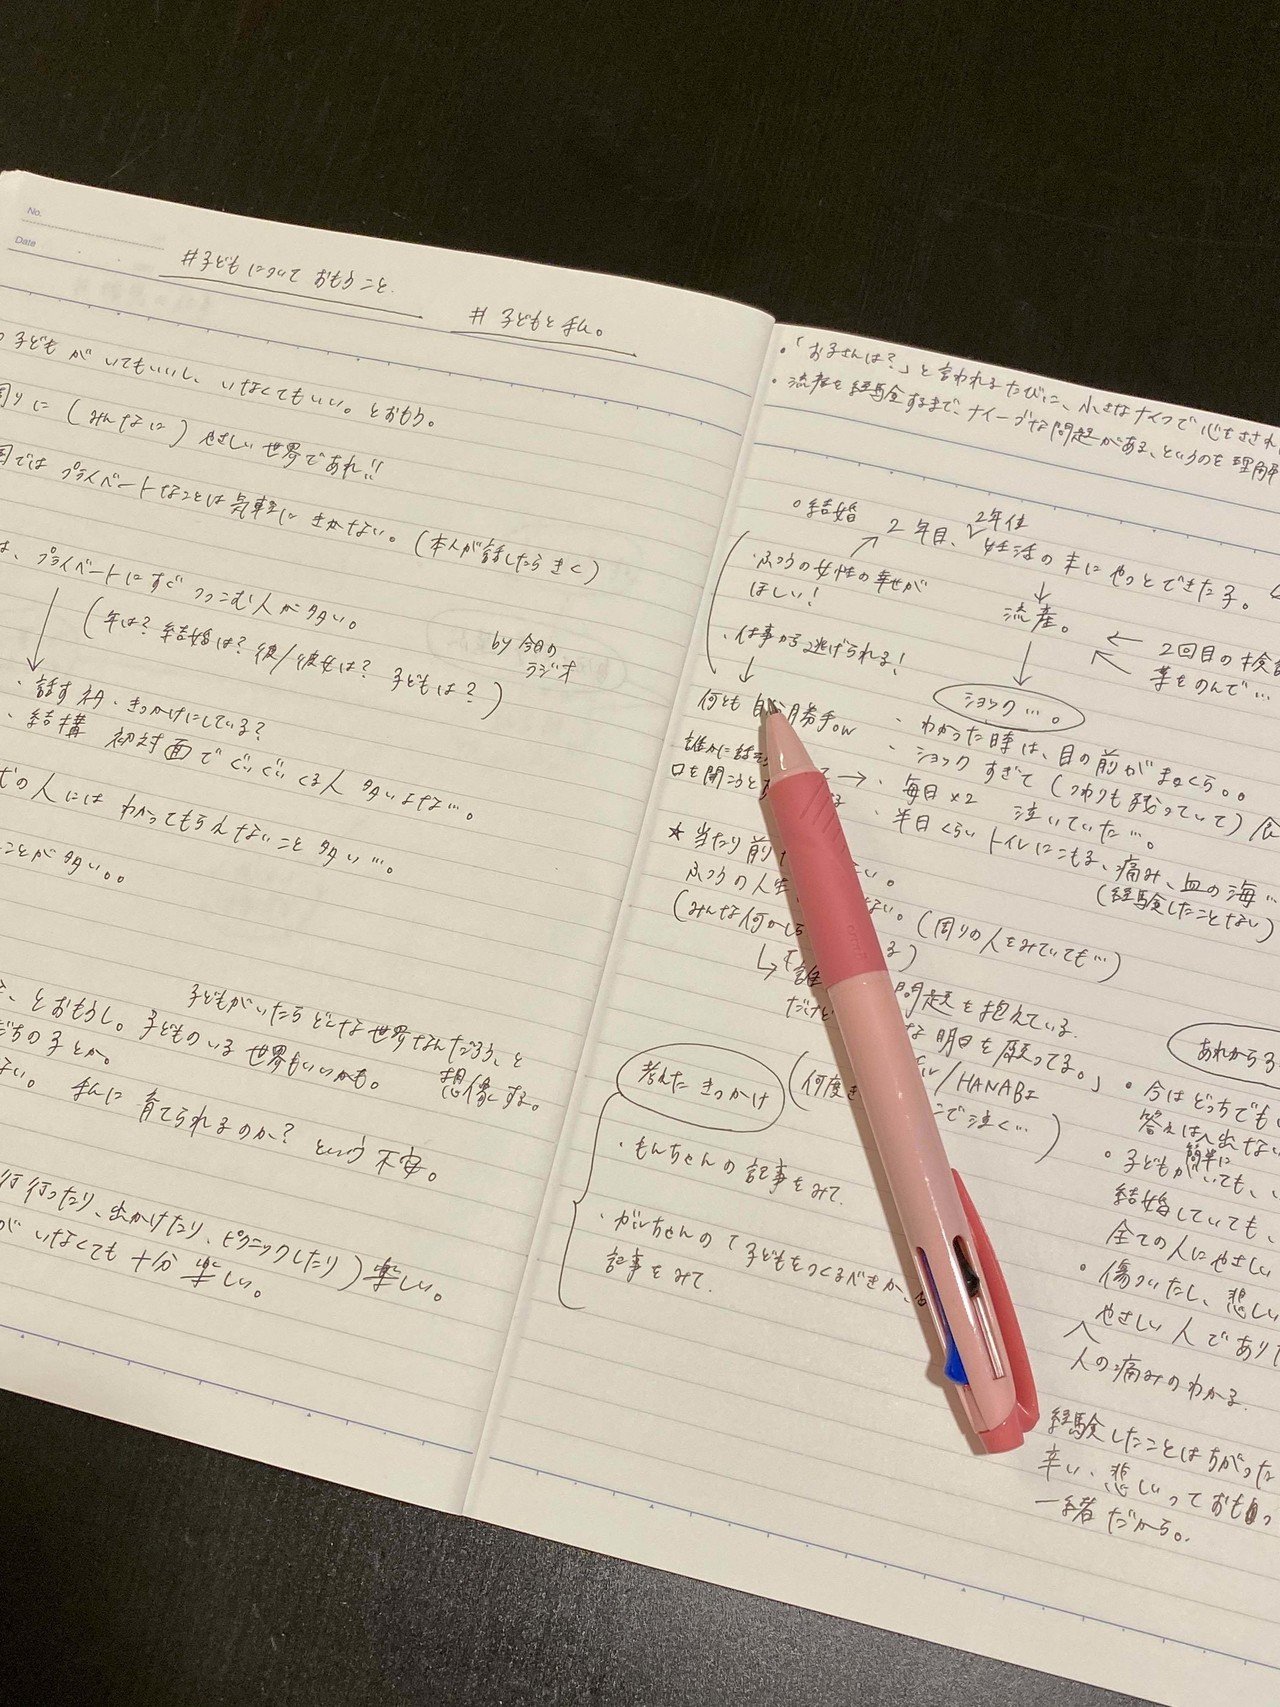 No.
Date
#子どもについておもうこと.
#子どもとほん。
子どもがいてもいいし、いなくてもいい。とおもう。
周りに(みんなに)やさしい世界であれ!!
国ではプライベートなことは気軽にきかない。(本人が話したらきく)
は、プライベートにすぐつっこむ人が多い。
(年は?結婚は?彼/彼女は?子どもは?)
by 今日の
ラジオ
・話す初・きっかけにしている?
・結構 初対面でぐいぐいくる人 多いよな…。
の人には わかってもらえないこと 多い…。
ことが多い。。
子どもがいたら どんな世界なんだろう、と
想像する。
、とおもうし。子どものいる世界もいいかも。
だちの子とか。
ない。 ほんに育てられるのか?という不安。
行ったり、出かけたり、ピクニックしたり)楽しい。
がいなくても十分 楽しい。
・「お子さんは?」と言われるたびに、小さなナイフで心をさされ
・流産を経験するまで、ナイーブな問題がある、というのを理解
○結婚
2年目、2年位
妊活の末にやっとできた子。
・ふつうの女性の幸せが
ほしい!
・仕事から逃げられる!
何とも自分勝手。w
流産。
2回目の検診
薬をのんで…
ショック…。
・わかった時は、目の前がまっくら。。
・ショックすぎて(つわりも残っていて)食
・毎日×2 泣いていた…。
・半日くらいトイレにこもる、痛み、血の海…
(経験したことない)
誰かに話そ
口を開こうと
★当たり前 い。
ふつうの人生 ない。(周りの人をみていても…)
(みんな何かしら る)
「誰 問題を抱えている。
だけど な明日を願ってる。」
考えたきっかけ
(何度も /HANABI
で泣く…)
・もんちゃんの記事をみて.
・ガルちゃんの「子どもをつくるべきか、
記事をみて.
あれから3
・今はどっちでも
答えは簡単に出ない
・子どもがいても、
結婚していても、
全ての人にやさしい
・傷ついたし、悲しい
やさしい人でありた
人の痛みのわかる.
経験したことはちがった
辛い、悲しいっておもっ
一緒だから。